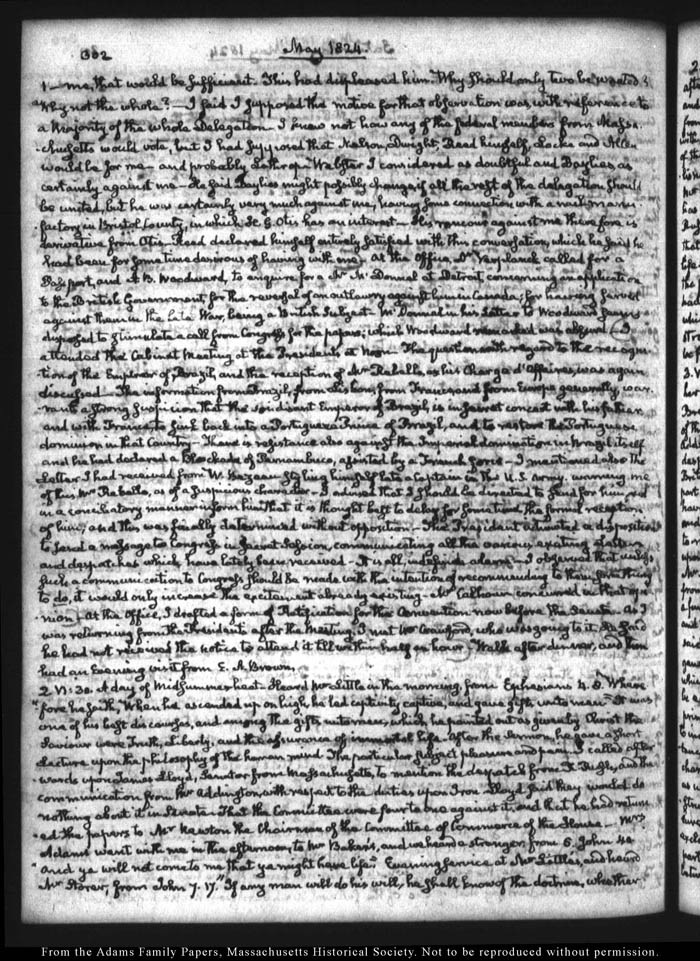 302
May 1824.
1 — me, that would be sufficient. This had displeased him. Why should only two be wanted?
"Why not the whole? — I said I supposed the motive for that observation was with reference to
a Majority of the whole Delegation — I knew not how any of the federal members from Massa-
-chusetts would vote, but I had supposed that Nelson, Dwight, Reed himself, Locke and Allen
would be for me — and probably Lathrop — Webster I considered as doubtful and Baylies as
certainly against me — He said Baylies might possibly change, if all the rest of the delegation should
be united, but he was certainly very much against me, having some connection with a manu-
-factory in Bristol County, in which H. G. Otis has an interest — His rancour against me therefore is
derivative from Otis. Reed declared himself entirely satisfied with this conversation, which he said he
had been for some time desirous of having with me. At the Office, Dr. Verplanck called for a
Passport, and A. B. Woodward, to enquire for a Mr. McDonnal at Detroit, concerning an application
to the British Government, for the reversal of an outlawry against him in Canada, for having served
against them in the late War, being a British Subject. McDonnal in his Letter to Woodward seems
disposed to stimulate a call from Congress for the papers; which Woodward remarked was absurd. I
attended the Cabinet Meeting at the Presidents at Noon. The question with regard to the recogni-
-tion of the Emperor of Brazil, and the reception of Mr. Rebello, as his Chargé d'Affaires, was again
discussed — The information from Brazil, from Lisbon, from France, and from Europe generally, war-
-rants a strong suspicion that the soi-disant Emperor of Brazil, is in secret concert with his father
and with France, to sink back into a Portuguese Prince of Brazil, and to restore the Portuguese
dominion in that Country — There is resistance also against the Imperial domination in Brazil itself
and he had declared a Blockade of Pernambuco, assisted by a French force — I mentioned also the
Letter I had received from W. styling himself late a Captain in the U.S. Army, warning me
of this Mr. Rebello, as of a suspicious character — I advised that I should be directed to send for him, and
in a conciliatory manner inform him that it is thought best to delay for some time the formal reception
of him; and this was finally determined without opposition — The President intimated a disposition
to send a message to Congress in secret Session, communicating all the various exciting Letters
and despatches which have lately been received — It is all, indefinite alarm — I observed that unless
such a communication to Congress should be made with the intention of recommending to them something
to do, it would only increase the excitement already existing — Mr. Calhoun concurred in that opi-
-nion — At the Office, I drafted a form of Ratification for the Convention now before the Senate. As I
was returning from the Presidents after the meeting, I met Mr. Crawford, who was going to it, he said
he had not received the notice to attend it till within half an hour — Walk after dinner, and then
had an Evening visit from E. A. Brown.
2. VI: 30. A day of Midsummer heat. Heard Mr. Little in the morning, from Ephesians 4. 8. "Where-
"fore he saith, When he ascended up on high, he led captivity captive, and gave gifts unto men." It was
one of his best discourses, and among the gifts unto men, which he pointed out as given by Christ the
Saviour were Truth, Liberty, and the assurance of immortal life. After the Sermon, he gave a short
Lecture upon the philosophy of the human mind. The particular subject pleasure and pain. I called after-
wards upon James Lloyd, Senator from Massachusetts, to mention the despatch from R. Rush, and the
communication from Mr. Addington, with respect to the duties upon Iron. Lloyd said they would do
nothing about it in Senate. That the Committee were four to one against it, and that he had return-
-ed the papers to Mr. Newton the Chairman of the Committee of Commerce of the House. Mrs.
Adams went with me in the afternoon, to Mr. Baker's, and we heard a stranger, from 5. John 40
"And ye will not come to me that ye might have life." Evening service at Mr. Little's, and heard
Mr. Storer, from John 7. 17. "If any man will do his will, he shall know of the doctrine, whether
From the Adams Family Papers, Massachusetts Historical Society. Not to be reproduced without permission.